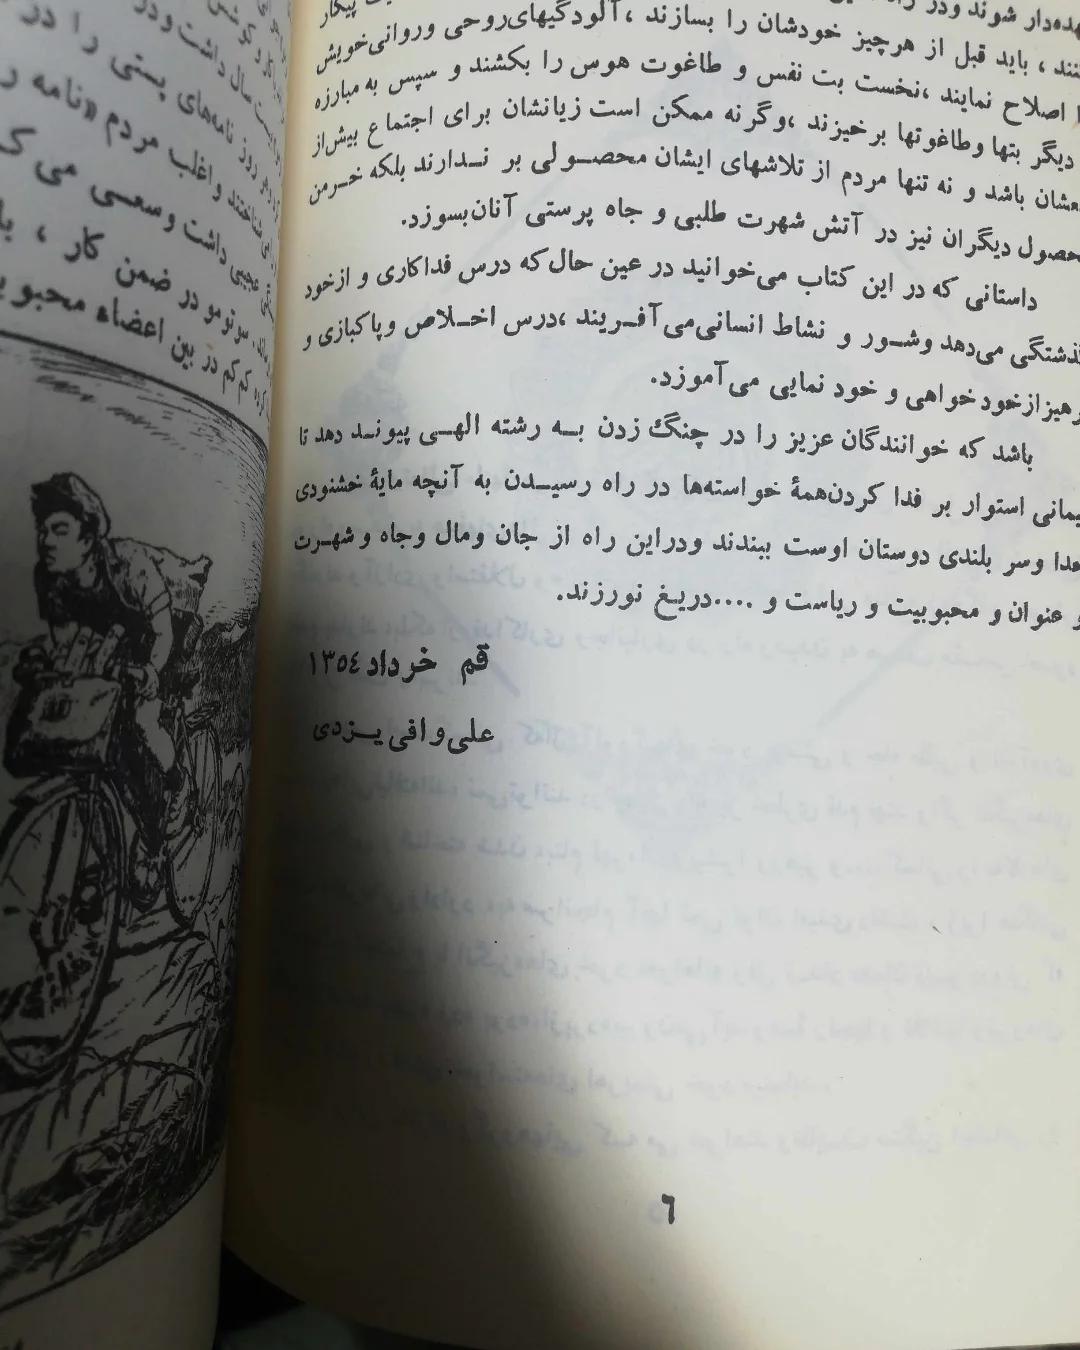 عهده‌دار شوند ودر
پیکار
کنند ، باید قبل از هرچیز خودشان را بسازند ،آلودگیهای‌روحی وروانی‌خویش
را اصلاح نمایند ،نخست بت نفس و طاغوت هوس را بکشند و سپس به مبارزه
دیگر بتها وطاغوتها برخیزند ،وگرنه ممکن است زیانشان برای اجتماع بیش‌از
نفعشان باشد و نه تنها مردم از تلاشهای ایشان محصولی بر ندارند بلکه خرمن
محصول دیگران نیز در آتش شهرت طلبی و جاه پرستی آنان‌بسوزد.
داستانی که در این کتاب می‌خوانید در عین حال‌که درس فداکاری و ازخود
گذشتگی می‌دهد وشور و نشاط انسانی‌می‌آفریند ،درس اخلاص وپاکبازی و
پرهیز ازخود خواهی و خود نمایی می‌آموزد.
باشد که خوانندگان عزیز را در چنگ زدن به رشته الهی پیوند دهد تا
ایمانی استوار بر فدا کردن‌همهٔ خواسته‌ها در راه رسیدن به آنچه مایهٔ خشنودی
خدا وسر بلندی دوستان اوست ببندند ودراین راه از جان ومال وجاه و شهرت
و عنوان و محبوبیت و ریاست و ....دریغ نورزند.
قم خرداد ۱۳٥٤
علی‌وافی یزدی
٦
سال داشت ودر
روز نامه‌های پستی را در
شناختند واغلب مردم «نامه ر
عجیبی داشت وسعی می ک
سوتومو در ضمن کار ، با
کم‌کم در بین اعضاء محبو